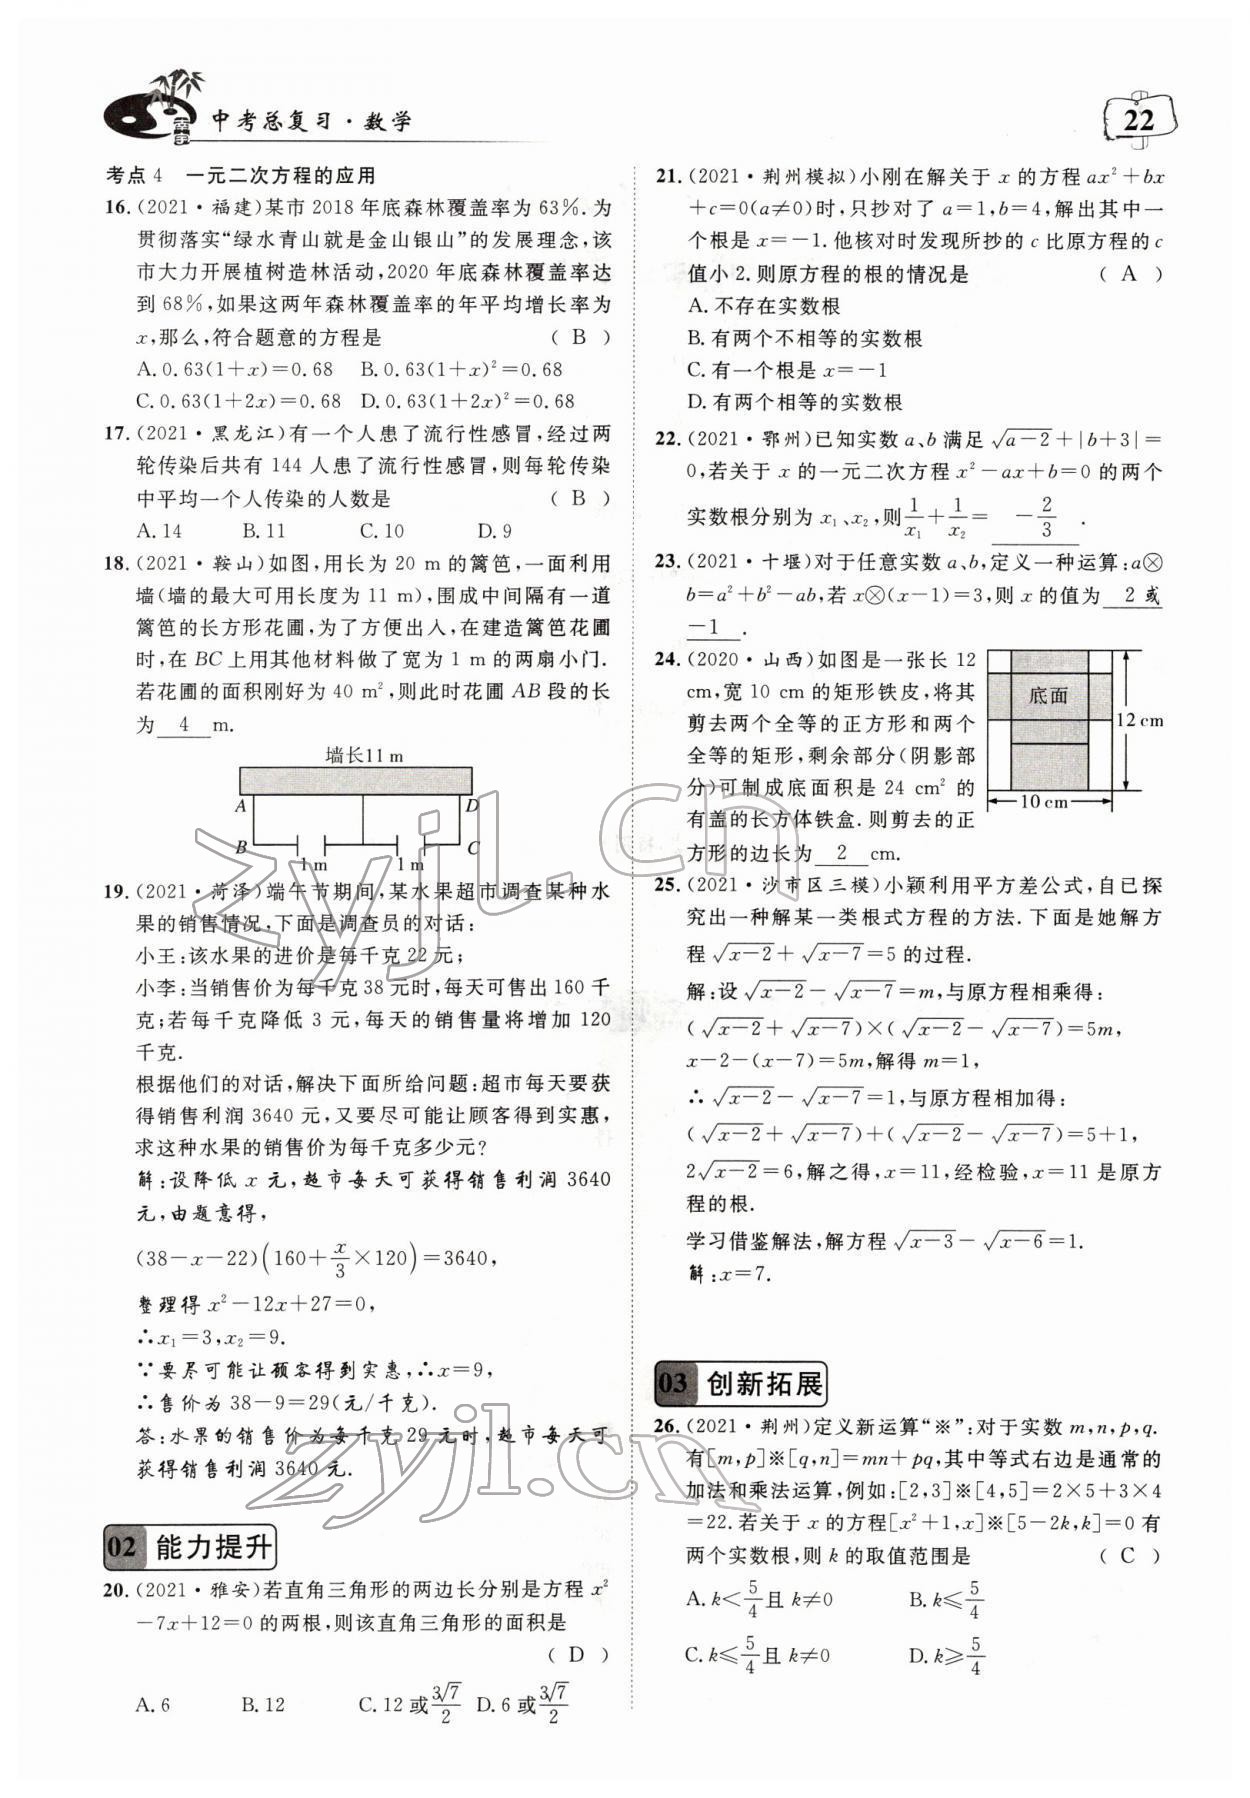 中考总复习·数学
22
考点 4 一元二次方程的应用
16.(2021·福建)某市 2018 年底森林覆盖率为 63%.为
贯彻落实“绿水青山就是金山银山”的发展理念,该
市大力开展植树造林活动,2020 年底森林覆盖率达
到 68%,如果这两年森林覆盖率的年平均增长率为
x,那么,符合题意的方程是 ( B )
A.0.63(1+x)=0.68 B.0.63(1+x)²=0.68
C.0.63(1+2x)=0.68 D.0.63(1+2x)²=0.68
17.(2021·黑龙江)有一个人患了流行性感冒,经过两
轮传染后共有 144 人患了流行性感冒,则每轮传染
中平均一个人传染的人数是 ( B )
A.14 B.11 C.10 D.9
18.(2021·鞍山)如图,用长为 20 m 的篱笆,一面利用
墙(墙的最大可用长度为 11 m),围成中间隔有一道
篱笆的长方形花圃,为了方便出人,在建造篱笆花圃
时,在 BC 上用其他材料做了宽为 1 m 的两扇小门.
若花圃的面积刚好为 40 m²,则此时花圃 AB 段的长
为 4 m.
墙长11 m
A D
B C
1 m 1 m
19.(2021·菏泽)端午节期间,某水果超市调查某种水
果的销售情况,下面是调查员的对话:
小王:该水果的进价是每千克 22 元;
小李:当销售价为每千克 38 元时,每天可售出 160 千
克;若每千克降低 3 元,每天的销售量将增加 120
千克.
根据他们的对话,解决下面所给问题:超市每天要获
得销售利润 3640 元,又要尽可能让顾客得到实惠,
求这种水果的销售价为每千克多少元?
解:设降低 x 元,超市每天可获得销售利润 3640
元,由题意得,
(38-x-22)(160+x/3×120)=3640,
整理得 x²-12x+27=0,
∴x₁=3,x₂=9.
∵要尽可能让顾客得到实惠,∴x=9,
∴售价为 38-9=29(元/千克).
答:水果的销售价为每千克 29 元时,超市每天可
获得销售利润 3640 元.
02 能力提升
20.(2021·雅安)若直角三角形的两边长分别是方程 x²
-7x+12=0 的两根,则该直角三角形的面积是
( D )
A.6 B.12 C.12 或3√7/2 D.6 或3√7/2
21.(2021·荆州模拟)小刚在解关于 x 的方程 ax²+bx
+c=0(a≠0)时,只抄对了 a=1,b=4,解出其中一
个根是 x=-1.他核对时发现所抄的 c 比原方程的 c
值小 2.则原方程的根的情况是 ( A )
A.不存在实数根
B.有两个不相等的实数根
C.有一个根是 x=-1
D.有两个相等的实数根
22.(2021·鄂州)已知实数 a、b 满足 √a-2+|b+3|=
0,若关于 x 的一元二次方程 x²-ax+b=0 的两个
实数根分别为 x₁、x₂,则1/x₁+1/x₂= -2/3 .
23.(2021·十堰)对于任意实数 a、b,定义一种运算:a⊗
b=a²+b²-ab,若 x⊗(x-1)=3,则 x 的值为 2 或
-1 .
24.(2020·山西)如图是一张长 12
cm,宽 10 cm 的矩形铁皮,将其
剪去两个全等的正方形和两个
全等的矩形,剩余部分(阴影部
分)可制成底面积是 24 cm² 的
有盖的长方体铁盒.则剪去的正
方形的边长为 2 cm.
底面
12 cm
10 cm
25.(2021·沙市区三模)小颖利用平方差公式,自己探
究出一种解某一类根式方程的方法.下面是她解方
程 √x-2+√x-7=5 的过程.
解:设 √x-2-√x-7=m,与原方程相乘得:
(√x-2+√x-7)×(√x-2-√x-7)=5m,
x-2-(x-7)=5m,解得 m=1,
∴√x-2-√x-7=1,与原方程相加得:
(√x-2+√x-7)+(√x-2-√x-7)=5+1,
2√x-2=6,解之得,x=11,经检验,x=11 是原方
程的根.
学习借鉴解法,解方程 √x-3-√x-6=1.
解:x=7.
03 创新拓展
26.(2021·荆州)定义新运算“※”:对于实数 m,n,p,q.
有[m,p]※[q,n]=mn+pq,其中等式右边是通常的
加法和乘法运算,例如:[2,3]※[4,5]=2×5+3×4
=22.若关于 x 的方程[x²+1,x]※[5-2k,k]=0 有
两个实数根,则 k 的取值范围是 ( C )
A.k<5/4且 k≠0 B.k≤5/4
C.k≤5/4且 k≠0 D.k≥5/4
zyjl.cn
zyjl.cn